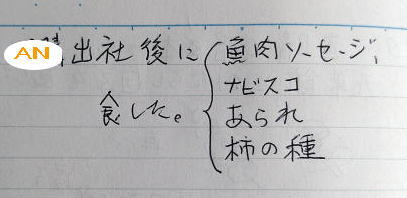 AN 出社後に 魚肉ソーセージ、
ナビスコ
食した。 あられ
柿の種